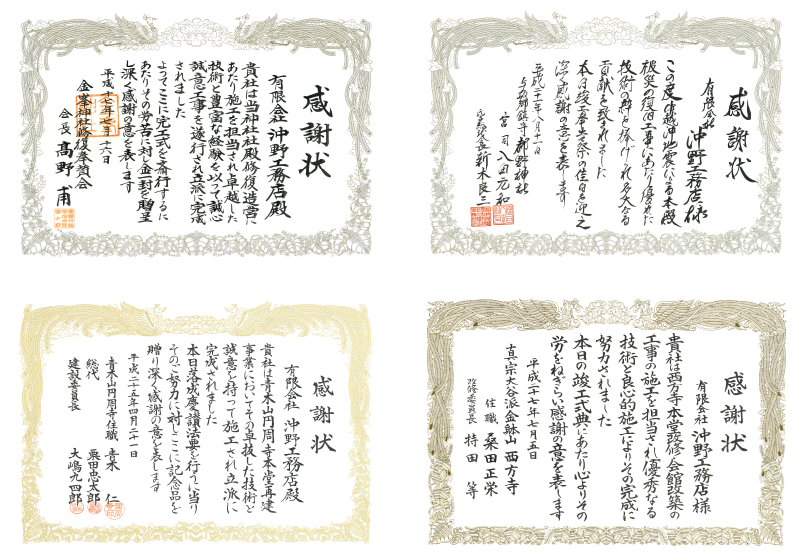 感謝状
有限会社 沖野工務店殿
貴社は当神社社殿修復造営に
あたり施工を担当され卓越した
技術と豊富な経験を以って誠心
誠意工事を遂行され立派に完成
されました
よってここに完工式を斎行するに
あたりその労苦に対し金一封を贈呈
し深く感謝の意を表します
平成十七年七月十六日
金峯神社修復奉賛会
会長 髙野 甫
感謝状
有限会社 沖野工務店様
この度中越沖地震による本殿
被災の復旧工事にあたり優れた
技術の粋を捧げられ多大なる
貢献を致されました
本日竣工奉告祭の佳日を迎え
深く感謝の意を表します
平成二十一年八月十一日
都野神社
宮司 入田元和
総代長 新木良三
感謝状
有限会社 沖野工務店殿
貴社は青木山円周寺本堂再建
事業においてその卓抜した技術と
誠意を持って施工され立派に
完成されました
本日落成慶讃法要を行うに当り
そのご努力に対しここに記念品を
贈り深く感謝の意を表します
平成二十五年四月二十一日
青木山円周寺住職 青木 仁
総代 栗田忠太郎
建設委員長 大嶋九四郎
感謝状
有限会社 沖野工務店様
貴社は西方寺本堂改修・会館改築の
工事の施工を担当され優秀なる
技術と良心的施工によりその完成に
努力されました
本日の竣工式典にあたり心よりその
労をねぎらい感謝の意を表します
平成二十七年七月五日
真宗大谷派金鉢山 西方寺
住職 桑田正栄
改修委員長 持田 等